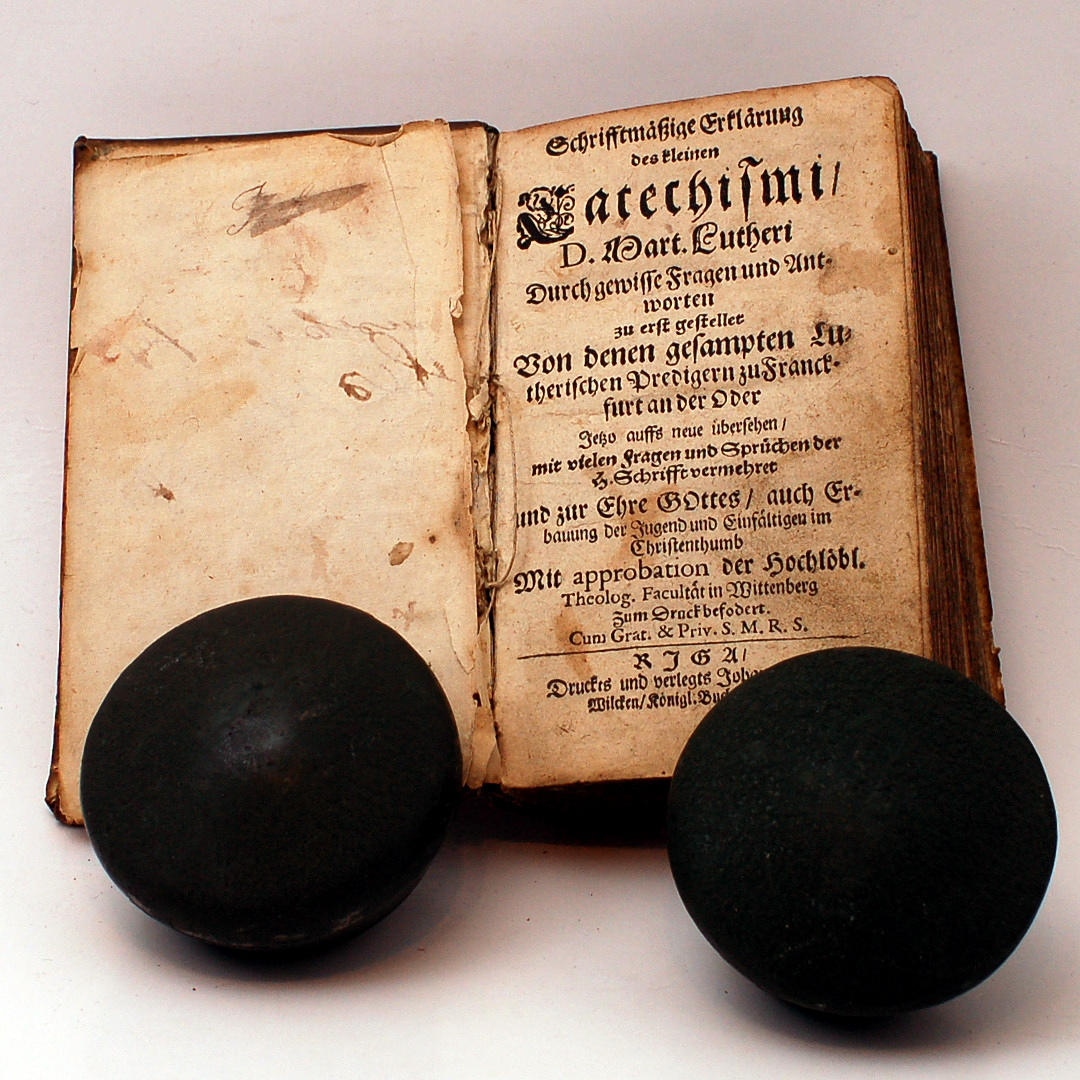 Schrifftmäßige Erklärung
des kleinen
Catechiſmi/
D. Mart. Lutheri
Durch gewiſſe Fragen und Ant-
worten
zu erſt geſtellet
Von denen geſampten Lu-
theriſchen Predigern zu Franck-
furt an der Oder
Jetzo auffs neue überſehen/
mit vielen Fragen und Sprüchen der
H. Schrifft vermehret
und zur Ehre GOttes/ auch Er-
bauung der Jugend und Einfältigen im
Chriſtenthumb
Mit approbation der Hochlöbl.
Theolog. Facultät in Wittenberg
Zum Druck befodert.
Cum Grat. & Priv. S. M. R. S.
RIGA/
Druckts und verlegts
Wilcken/ Königl.